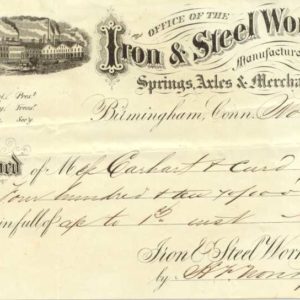 OFFICE OF THE
Iron & Steel Wor
Manufactur
Springs, Axles & Mercha
Pres't
Treas.
Sec'y
Birmingham, Conn. No
of Mess Earhart & Curd
Four hundred &
in full of ap to 1st inst
Iron & Steel Wor
by